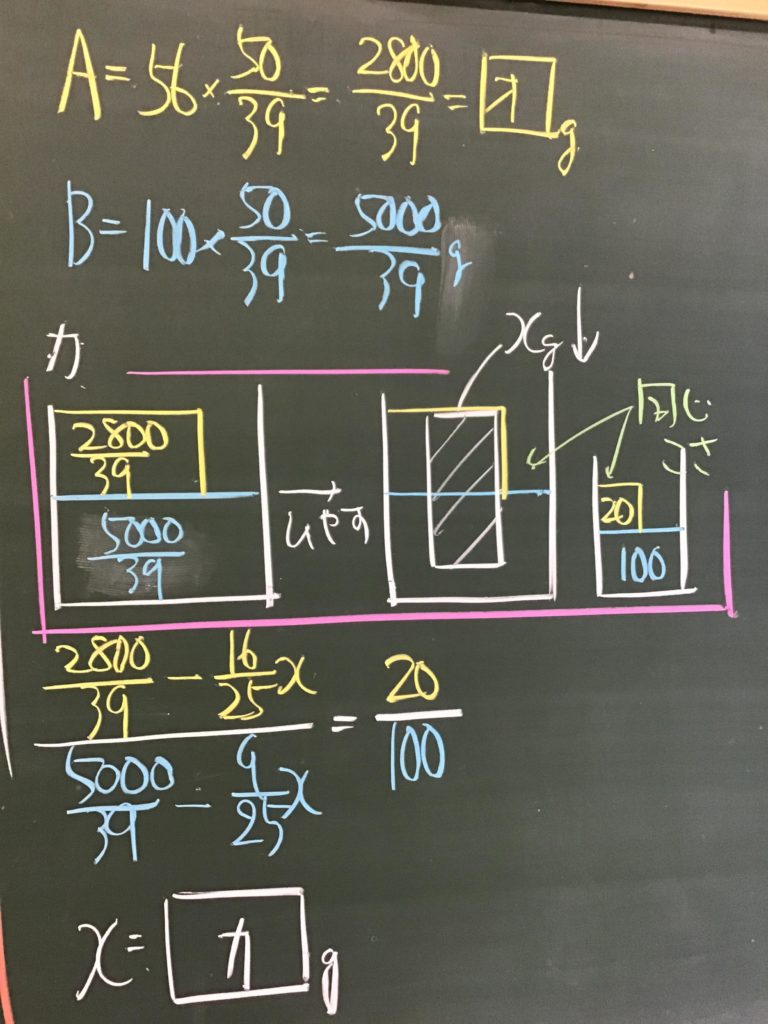 A = 56 × 50/39 = 2800/39 = オ g
B = 100 × 50/39 = 5000/39 g
カ
xg ↓
2800/39
5000/39
→
冷やす
同じこさ
20
100
(2800/39 − 16/25 x)/(5000/39 − 9/25 x) = 20/100
x = カ g